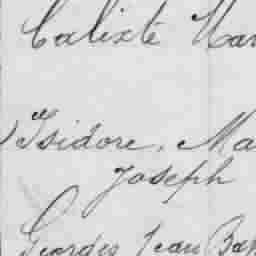 Calixte Mar
Isidore, Ma
Joseph
Georges Jean Bap